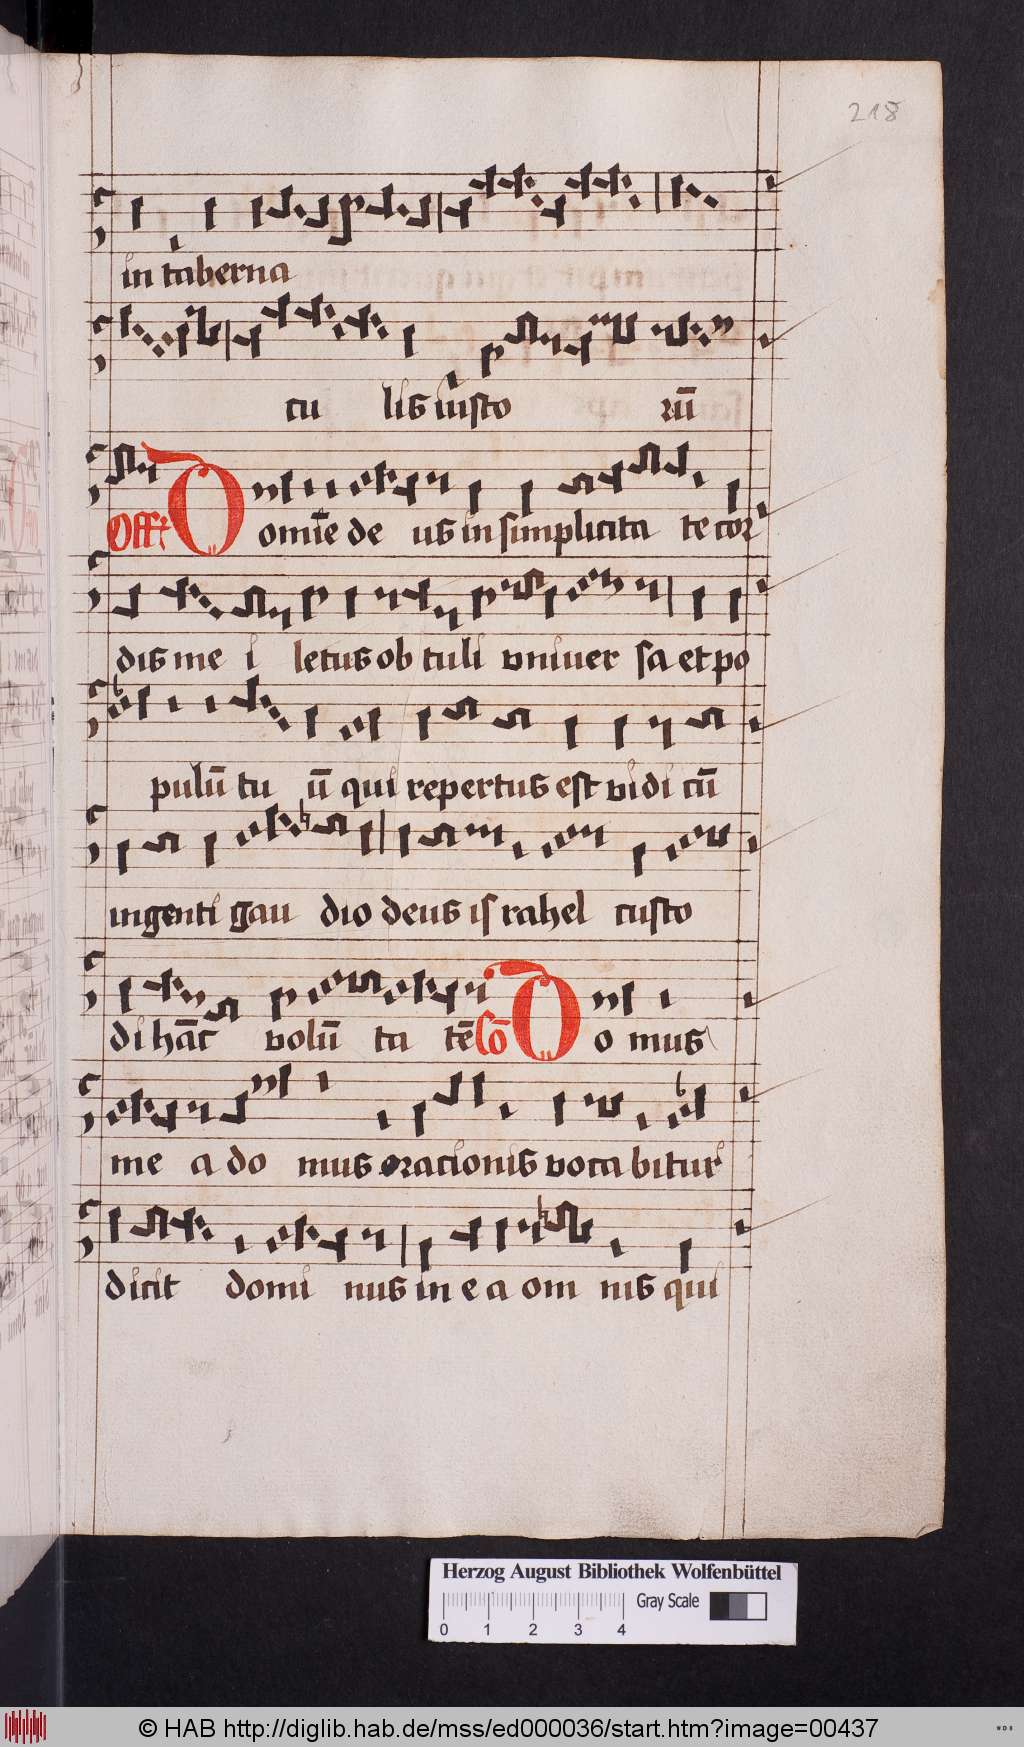 218
in taberna
cu lis iusto rū
Offr Domīe de us in simplicita te cor
dis me i letus ob tuli vniuer sa et po
pulū tu ū qui repertus est vidi cū
ingenti gau dio deus israhel custo
di hāc volū ta tē Cō Domus
me a domus oracionis vocabitur
dicit domi nus in ea om nis qui
Herzog August Bibliothek Wolfenbüttel
Gray Scale
0 1 2 3 4
© HAB http://diglib.hab.de/mss/ed000036/start.htm?image=00437